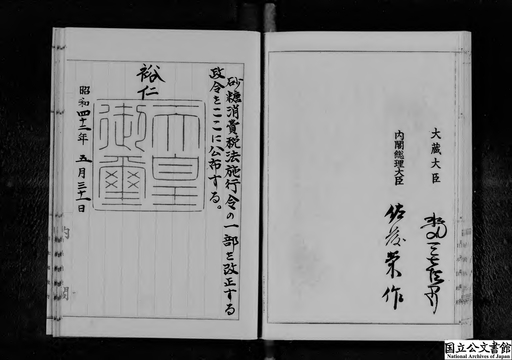 大蔵大臣
水田三喜男
内閣総理大臣
佐藤栄作
砂糖消費税法施行令の一部を改正する
政令をここに公布する。
裕仁
天皇
御璽
昭和四十二年五月三十一日
内閣
国立公文書館
National Archives of Japan